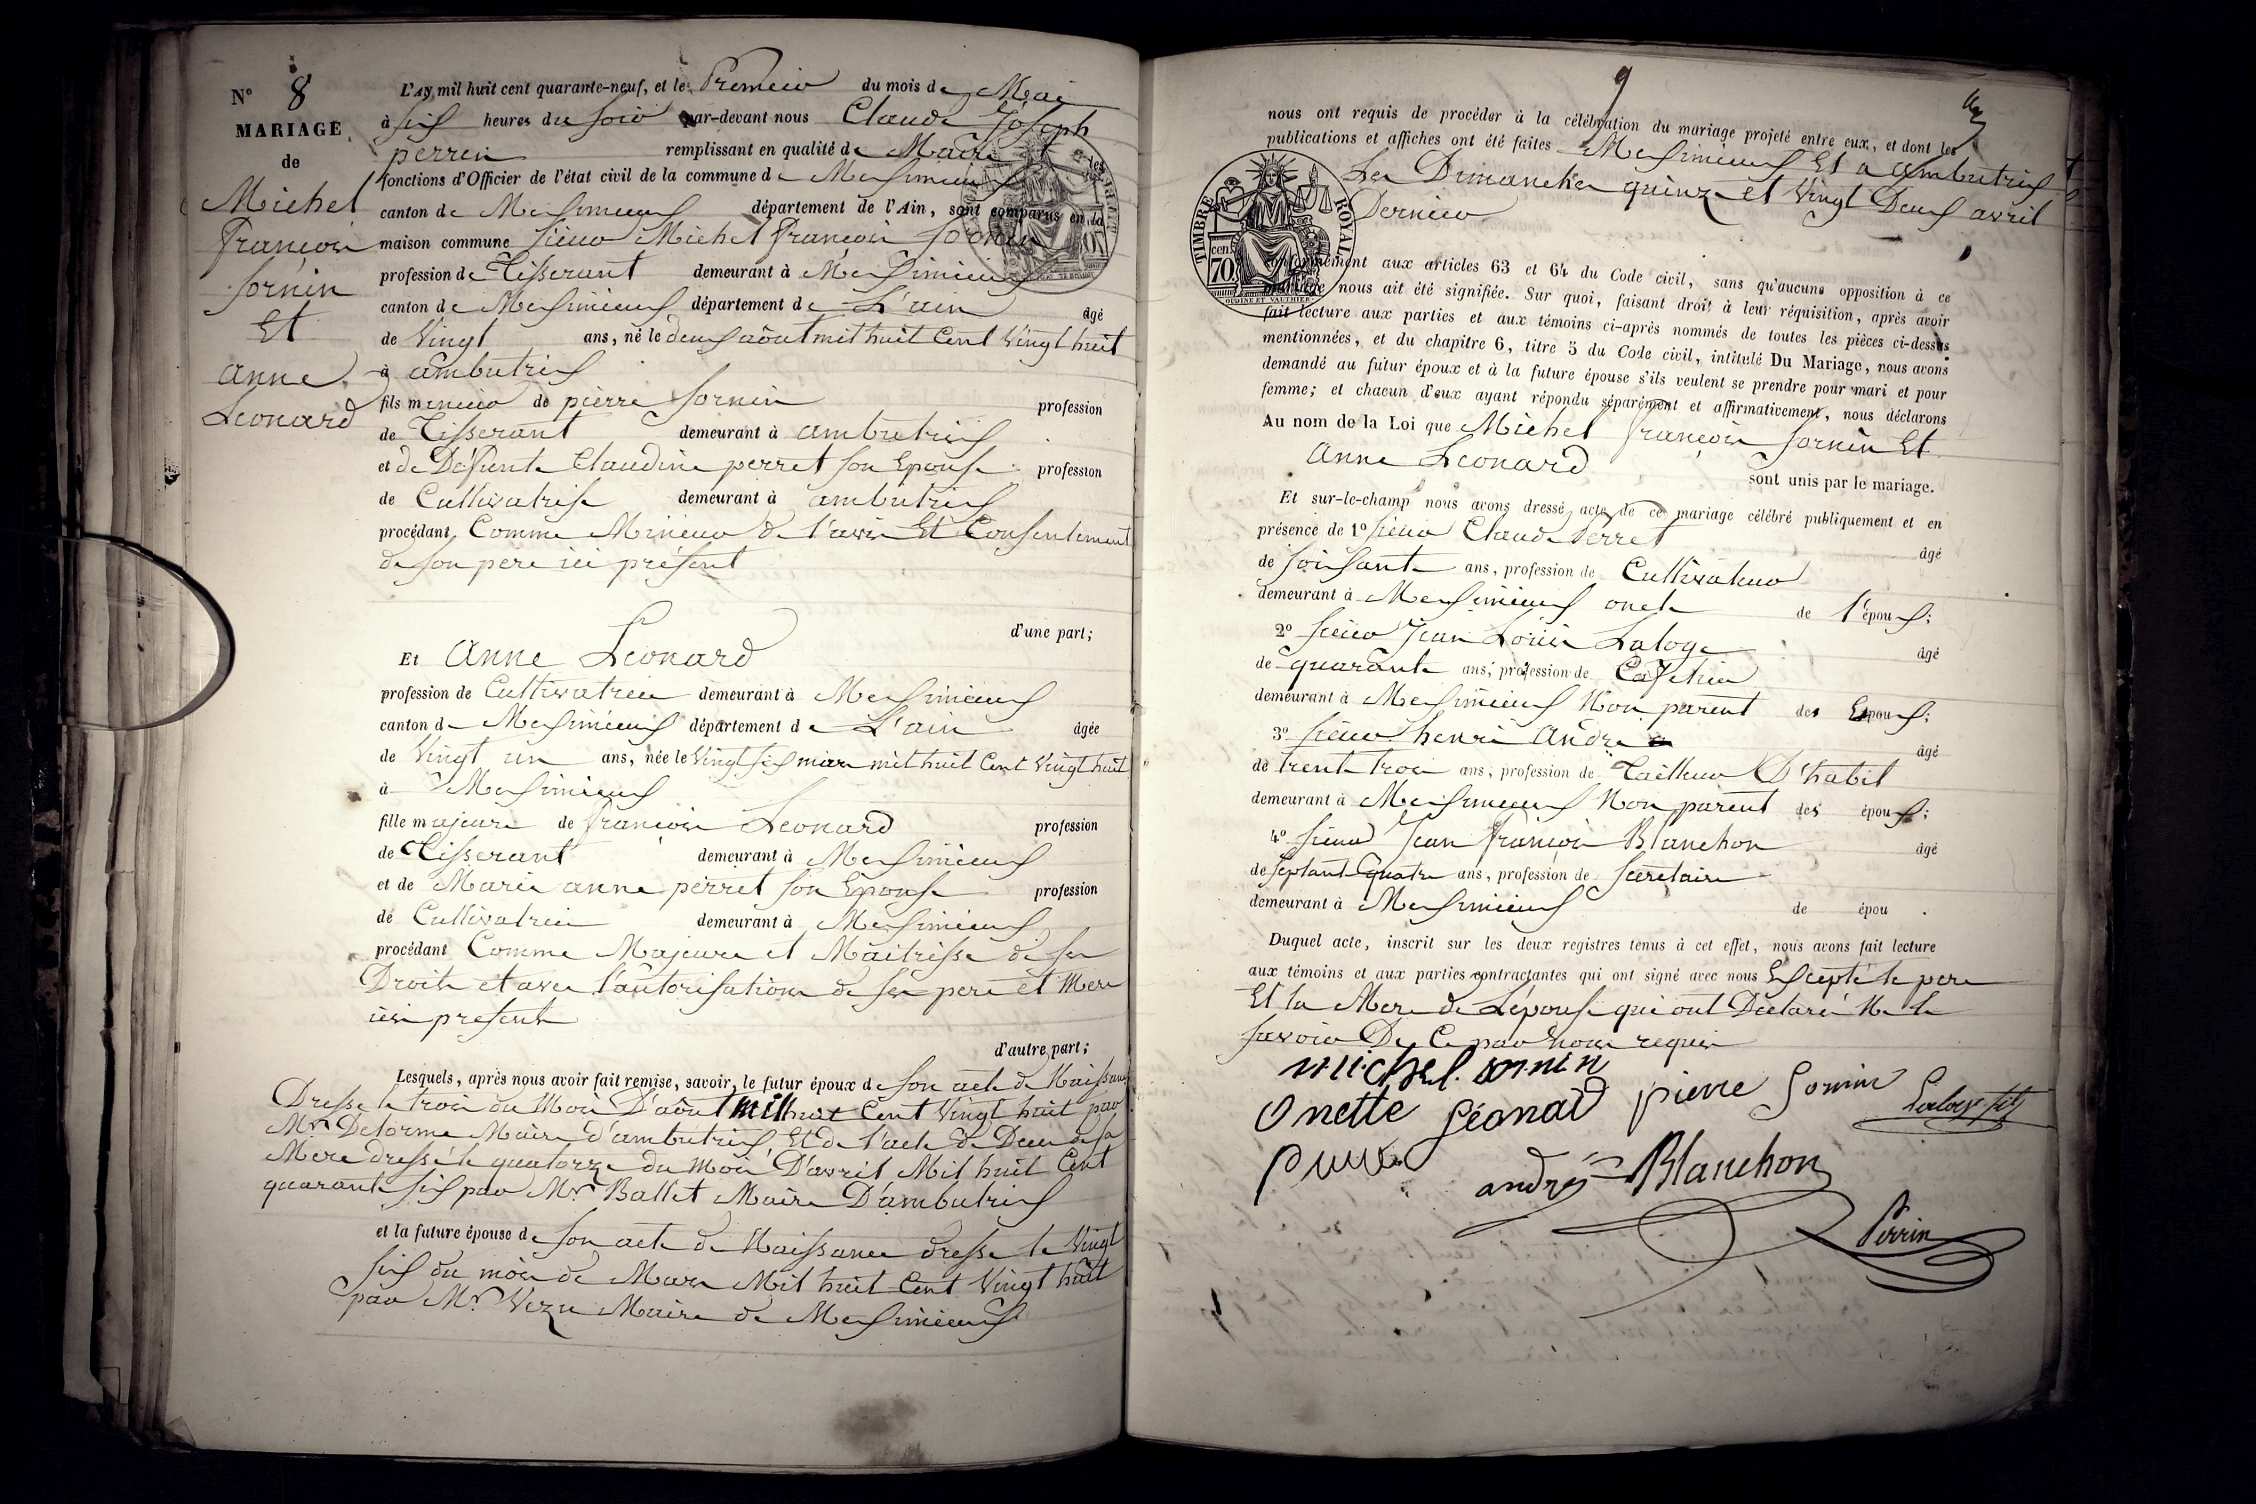 N° 8
MARIAGE
de
Michel
françois
Sornin
Et
anne
Leonard
L'AN mil huit cent quarante-neuf, et le Premier du mois de Mai
à six heures du soir par-devant nous Claude Joseph
perrin remplissant en qualité de Maire les
fonctions d'Officier de l'état civil de la commune de Meximieux
canton de Meximieux département de l'Ain, sont comparus en la
maison commune sieur Michel françois Sornin
profession de Tisserant demeurant à Meximieux
canton de Meximieux département de L'ain âgé
de Vingt ans, né le deux aôut mil huit Cent Vingt huit
à ambutrix
fils mineur de pierre Sornin profession
de Tisserant demeurant à ambutrix
et de Défunte Claudine perret son Epouse profession
de Cultivatrise demeurant à ambutrix
procédant Comme Mineur de l'avis Et Consentement
de son pere ici présent
d'une part;
Et anne Leonard
profession de Cultivatrice demeurant à Meximieux
canton de Meximieux département de L'ain âgée
de Vingt un ans, née le Vingt six mars mil huit Cent Vingt huit
à Meximieux
fille majeure de françois Leonard profession
de Tisserant demeurant à Meximieux
et de Marie anne perret son Epouse profession
de Cultivatrice demeurant à Meximieux
procédant Comme Majeure et Maitresse de ses
Droits et avec l'autorisation de ses pere et Mere
ici présents
d'autre part;
Lesquels, après nous avoir fait remise, savoir, le futur époux de son acte de Naissance
Dresse le trois du Mois D'aôut mil huit Cent Vingt huit par
Mr Delorme Maire d'ambutrix Et de l'acte de Deces de sa
Mere dressé le quatorze du mois D'avril Mil huit Cent
quarante six par Mr Ballet Maire D'ambutrix
et la future épouse de son acte de Naissance dresse le Vingt
six du mois de Mars Mil huit Cent Vingt huit
par Mr Vezu Maire de Meximieux
9
nous ont requis de procéder à la célébration du mariage projeté entre eux, et dont les
publications et affiches ont été faites Meximieux Et a ambutrix
Les Dimanches quinze et Vingt Deux avril
Dernier
TIMBRE ROYAL
70 cen
OUDINÉ ET VAUTHIER
conformément aux articles 63 et 64 du Code civil, sans qu'aucune opposition à ce
mariage nous ait été signifiée. Sur quoi, faisant droit à leur réquisition, après avoir
fait lecture aux parties et aux témoins ci-après nommés de toutes les pièces ci-dessus
mentionnées, et du chapitre 6, titre 5 du Code civil, intitulé Du Mariage, nous avons
demandé au futur époux et à la future épouse s'ils veulent se prendre pour mari et pour
femme; et chacun d'eux ayant répondu séparément et affirmativement, nous déclarons
Au nom de la Loi que Michel françois Sornin Et
anne Leonard
sont unis par le mariage.
Et sur-le-champ nous avons dressé acte de ce mariage célébré publiquement et en
présence de 1° sieur Claude Perret âgé
de soixante ans, profession de Cultivateur
demeurant à Meximieux oncle de l'époux;
2° sieur Jean Louis Laloge âgé
de quarante ans, profession de Caffetier
demeurant à Meximieux Non parent des Epoux;
3° sieur henri André âgé
de trente trois ans, profession de Tailleur D'habit
demeurant à Meximieux Non parent des époux;
4° sieur Jean françois Blanchon âgé
de septante quatre ans, profession de Secretaire
demeurant à Meximieux de épou .
Duquel acte, inscrit sur les deux registres tenus à cet effet, nous avons fait lecture
aux témoins et aux parties contractantes qui ont signé avec nous Excepté le pere
Et la Mere de L'épouse qui ont Déclaré Ne le
savoir De Ce par Nous requis
michel sornin
Onette Léonard pierre Sornin Laloge fils
andré Blanchon
Perrin